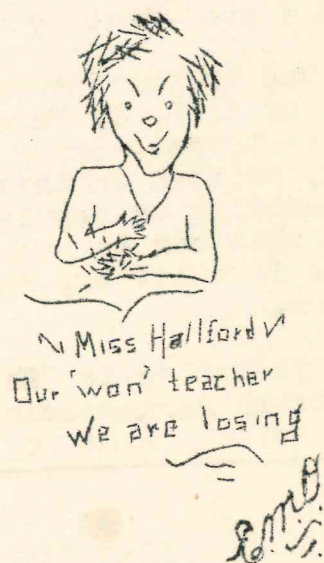 Miss Hallford
Our 'won' teacher
we are losing